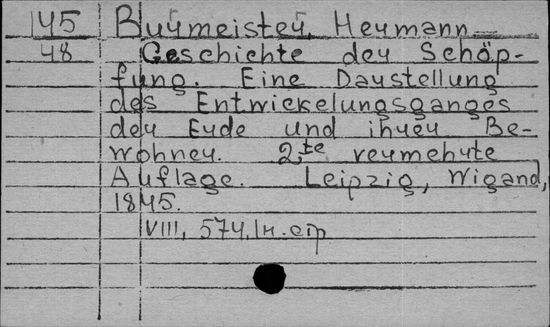 145 Burmeister, Hermann
48 Geschichte der Schöp-
fung. Eine Darstellung
des Entwickelungsganges
der Erde und ihrer Be-
wohner. 2,te vermehrte
Auflage. Leipzig, Wigand,
1845.
VIII, 574, 1н. стр